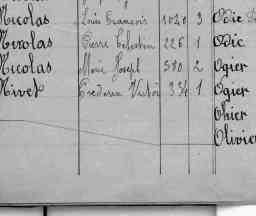 Nicolas Louis François 1040 3 Odic
Nicolas Pierre Celestin 226 1 Odic
Nicolas Marie Joseph 580 2 Ogier
Nivet Frederic Victor 334 1 Ogier
Ohier
Olivier